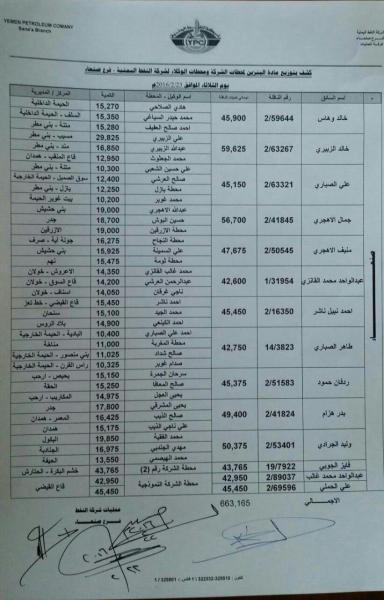 YEMEN PETROLEUM COMPANY
Sana'a Branch
شركة النفط اليمنية
YPC
كشف بتوزيع مادة البنزين لمحطات الشركة ومحطات الوكلاء لشركة النفط اليمنية - فرع صنعاء
يوم الثلاثاء الموافق 2016/2/23م
م اسم السائق رقم القاطرة اسم الوكيل - المحطة الكمية المركز / المديرية
خالد وهاس 2/59644 45,900 هادي الصلاحي 15,270 الحيمة الداخلية
محمد حيدر السياغي 15,350 السلف - الحيمة الداخلية
احمد صالح العفيف 15,280 متنة - بني مطر
خالد الزبيري 2/63267 59,625 علي الزبيري 29,825 مسيب - بني مطر
عبدالله الزبيري 16,850 مند - بني مطر
محمد الجعلوث 12,950 قاع المنقب - همدان
علي الصباري 2/63321 45,150 علي حسين الشعبي 10,300 متنة - بني مطر
صالح العرشي 12,400 سوق الصميل - الحيمة الخارجية
محطة بازل 12,250 بازل - بني مطر
محمد غوبر 10,200 بيت غوبر الحيمة
جمال الاهجري 2/41845 56,700 عبدالله الاهجري 19,000 بني حشيش
حسين اليوش 18,700 جدر
محطة الازرقين 19,000 الازرقين
منيف الاهجري 2/50545 47,675 محطة النجاح 16,275 جولة آية - صرف
علي السمينة 15,925 بني حشيش
محطة ثومة 15,475 نهم
عبدالواحد محمد الفائزي 1/31954 42,600 محمد غالب الفائزي 14,350 الاعروش - خولان
عبدالرحمن العرشي 14,200 قاع السوق - خولان
ناجي غرقان 14,050 اسناف - خولان
احمد نبيل ناشر 2/16350 45,450 احمد ناشر 15,450 قاع القيضي - خط تعز
محمد الجيد 15,100 سنحان
احمد الكينعي 14,900 بلاد الروس
طاهر الصباري 14/3823 42,750 احمد علي الصباري 10,400 البادية - الحيمة الخارجية
محطة المغربة 11,000 مناخة
صالح شداد 11,025 بني منصور - الحيمة الخارجية
صدام غوبر 10,325 راس القرن - الحيمة الخارجية
ردفان حمود 2/51583 45,375 سرحان الجمرة 15,150 يحيص - ارحب
صالح المعافا 15,250 الحقة
يحيى العجل 14,975 المكاريب - ارحب
بدر هزام 2/41824 49,400 يحيى المشرقي 17,800 جدر
صالح الذيب 16,425 المصر - همدان
علي ناجي الذيب 15,175 همدان
وليد الجرادي 2/53401 50,375 محمد الفقية 19,850 البكول
مهدي الجنديبي 16,975 الجنادية
محمد الهيصمي 13,550 الحيفة
فايز الجوبي 19/7922 43,765 محطة الشركة رقم (2) 43,765 خشم البكرة - الحتارش
عبدالواحد محمد غالب 2/89037 42,950 محطة الشركة النموذجية 42,950 قاع القيضي
علي الحملي 2/69596 45,450 45,450
صنعاء
الاجمالي 663,165
عمليات شركة النفط
فرع صنعاء